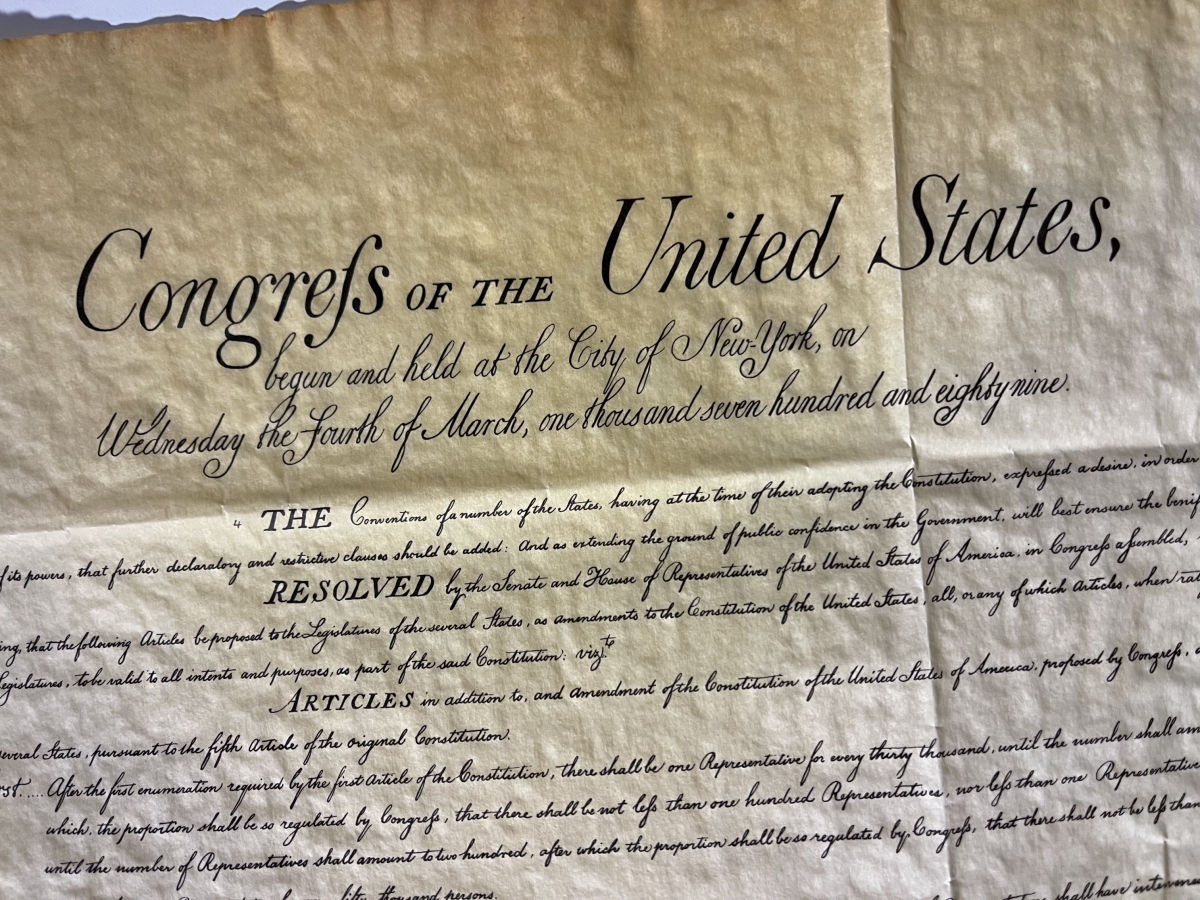 Congreſs OF THE United States,
begun and held at the City of New-York, on
Wednesday the Fourth of March, one thousand seven hundred and eighty nine.
4 THE Conventions of a number of the States, having at the time of their adopting the Constitution, expreſsed a desire, in order
f its powers, that further declaratory and restrictive clauses should be added: And as extending the ground of public confidence in the Government, will best ensure the benif
RESOLVED by the Senate and House of Representatives of the United States of America, in Congreſs aſsembled,
ing, that the following Articles be proposed to the Legislatures of the several States, as amendments to the Constitution of the United States, all, or any of which Articles, when rat
Legislatures, to be valid to all intents and purposes, as part of the said Constitution: viz.t
ARTICLES in addition to, and amendment of the Constitution of the United States of America, proposed by Congreſs,
several States, pursuant to the fifth Article of the original Constitution.
rst..... After the first enumeration required by the first Article of the Constitution, there shall be one Representative for every thirty thousand, until the number shall am
which, the proportion shall be so regulated by Congreſs, that there shall be not leſs than one hundred Representatives, nor leſs than one Representative
until the number of Representatives shall amount to two hundred, after which the proportion shall be so regulated by Congreſs, that there shall not be leſs than
fifty thousand persons.
shall have intervened